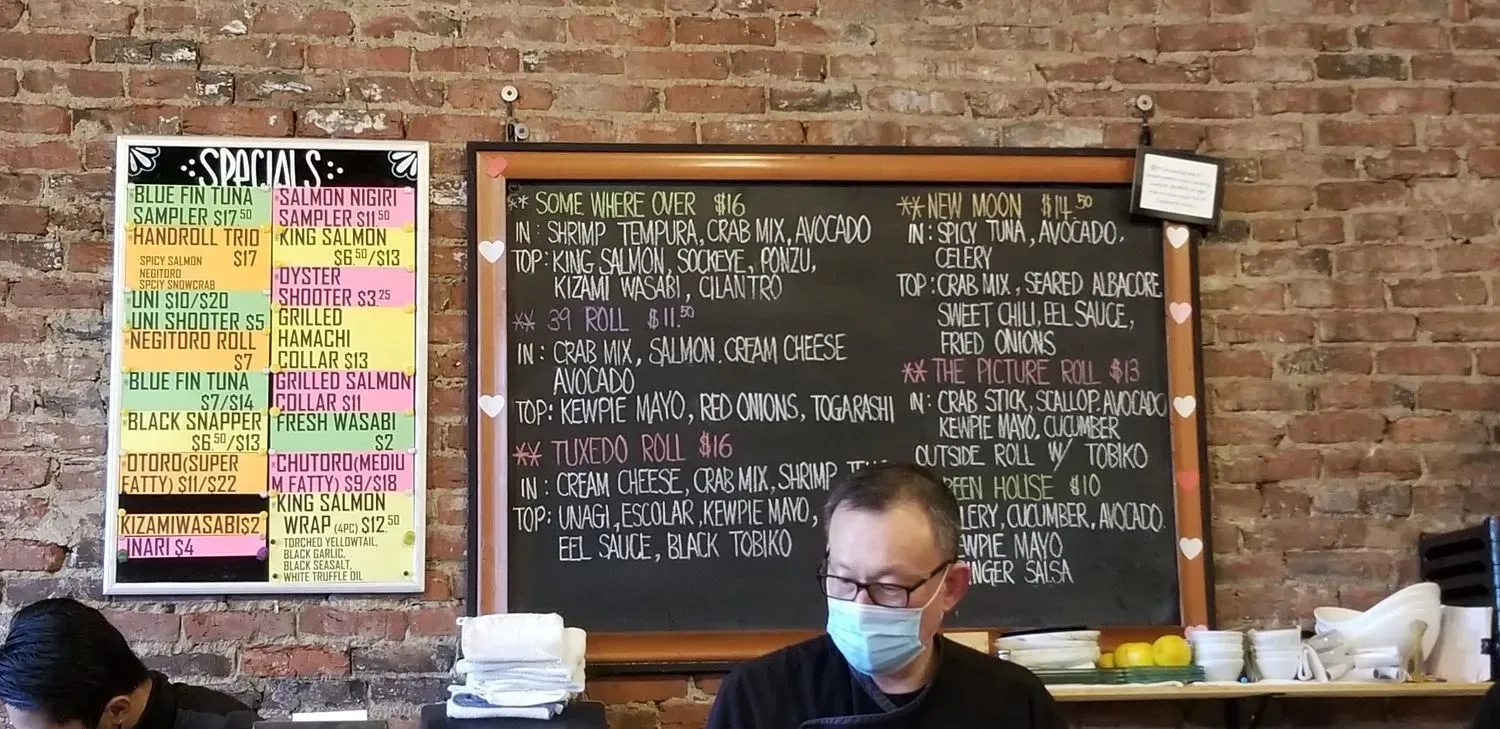 SPECIALS
BLUE FIN TUNA
SAMPLER $17.50
HANDROLL TRIO
$17
SPICY SALMON
NEGITORO
SPCIY SNOWCRAB
UNI $10/$20
UNI SHOOTER $5
NEGITORO ROLL
$7
BLUE FIN TUNA
$7/$14
BLACK SNAPPER
$6.50/$13
OTORO(SUPER
FATTY) $11/$22
KIZAMIWASABI$2
INARI $4
SALMON NIGIRI
SAMPLER $11.50
KING SALMON
$6.50/$13
OYSTER
SHOOTER $3.25
GRILLED
HAMACHI
COLLAR $13
GRILLED SALMON
COLLAR $11
FRESH WASABI
$2
CHUTORO(MEDIU
M FATTY) $9/$18
KING SALMON
WRAP (4PC) $12.50
TORCHED YELLOWTAIL,
BLACK GARLIC,
BLACK SEASALT,
WHITE TRUFFLE OIL
** SOME WHERE OVER $16
IN: SHRIMP TEMPURA, CRAB MIX, AVOCADO
TOP: KING SALMON, SOCKEYE, PONZU,
KIZAMI WASABI, CILANTRO
** 39 ROLL $11.50
IN: CRAB MIX, SALMON. CREAM CHEESE
AVOCADO
TOP: KEWPIE MAYO, RED ONIONS, TOGARASHI
** TUXEDO ROLL $16
IN: CREAM CHEESE, CRAB MIX, SHRIMP
TOP: UNAGI, ESCOLAR, KEWPIE MAYO,
EEL SAUCE, BLACK TOBIKO
** NEW MOON $14.50
IN: SPICY TUNA, AVOCADO,
CELERY
TOP: CRAB MIX, SEARED ALBACORE
SWEET CHILI, EEL SAUCE,
FRIED ONIONS
** THE PICTURE ROLL $13
IN: CRAB STICK, SCALLOP, AVOCADO
KEWPIE MAYO, CUCUMBER
OUTSIDE ROLL W/ TOBIKO
EEN HOUSE $10
LERY, CUCUMBER, AVOCADO
EWPIE MAYO
INGER SALSA